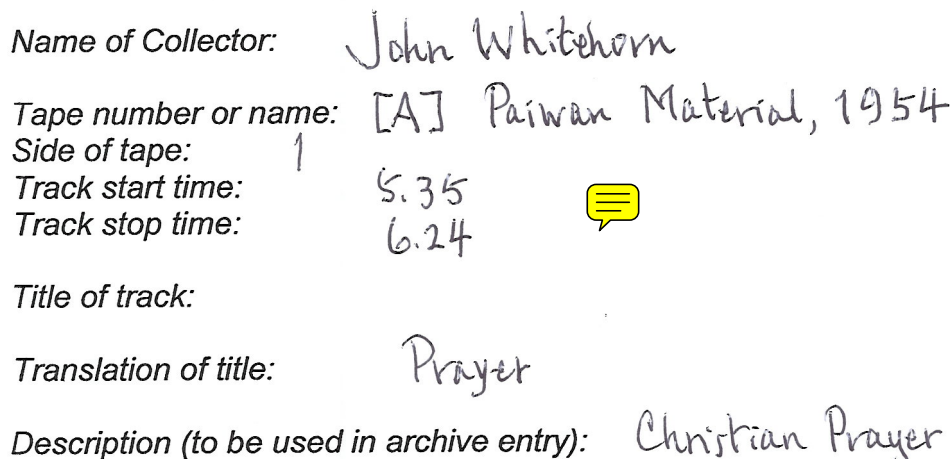 Name of Collector: John Whitehorn
Tape number or name: [A] Paiwan Material, 1954
Side of tape: 1
Track start time: 5.35
Track stop time: 6.24
Title of track:
Translation of title: Prayer
Description (to be used in archive entry): Christian Prayer